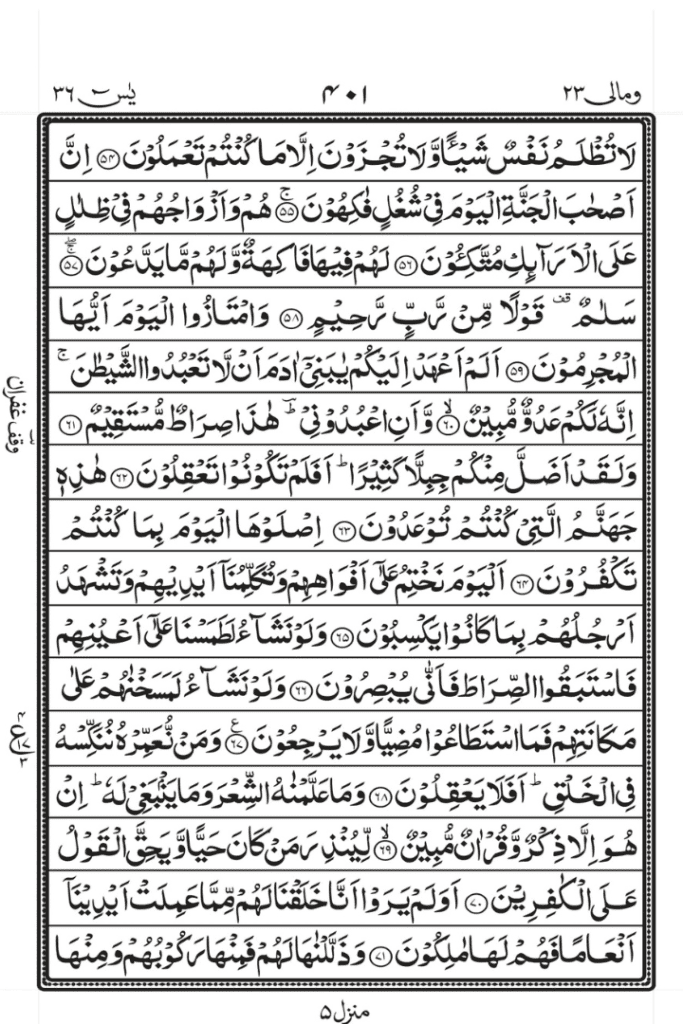 يٰسٓ ٣٦
٤٠١
ومالی ٢٣
لَا تُظْلَمُ نَفْسٌ شَيْـًٔا وَّلَا تُجْزَوْنَ اِلَّا مَا كُنْتُمْ تَعْمَلُوْنَ ﴿٥٤﴾ اِنَّ
اَصْحٰبَ الْجَنَّةِ الْيَوْمَ فِيْ شُغُلٍ فٰكِهُوْنَ ۚ﴿٥٥﴾ هُمْ وَاَزْوَاجُهُمْ فِيْ ظِلٰلٍ
عَلَى الْاَرَآئِكِ مُتَّكِـُٔوْنَ ﴿٥٦﴾ لَهُمْ فِيْهَا فَاكِهَةٌ وَّلَهُمْ مَّا يَدَّعُوْنَ ۖۚ﴿٥٧﴾
سَلٰمٌ قف قَوْلًا مِّنْ رَّبٍّ رَّحِيْمٍ ﴿٥٨﴾ وَامْتَازُوا الْيَوْمَ اَيُّهَا
الْمُجْرِمُوْنَ ﴿٥٩﴾ اَلَمْ اَعْهَدْ اِلَيْكُمْ يٰبَنِيْٓ اٰدَمَ اَنْ لَّا تَعْبُدُوا الشَّيْطٰنَ ۚ
اِنَّهٗ لَكُمْ عَدُوٌّ مُّبِيْنٌ ۙ﴿٦٠﴾ وَّاَنِ اعْبُدُوْنِيْ ؕ هٰذَا صِرَاطٌ مُّسْتَقِيْمٌ ﴿٦١﴾
وَلَقَدْ اَضَلَّ مِنْكُمْ جِبِلًّا كَثِيْرًا ؕ اَفَلَمْ تَكُوْنُوْا تَعْقِلُوْنَ ﴿٦٢﴾ هٰذِهٖ
جَهَنَّمُ الَّتِيْ كُنْتُمْ تُوْعَدُوْنَ ﴿٦٣﴾ اِصْلَوْهَا الْيَوْمَ بِمَا كُنْتُمْ
تَكْفُرُوْنَ ﴿٦٤﴾ اَلْيَوْمَ نَخْتِمُ عَلٰٓى اَفْوَاهِهِمْ وَتُكَلِّمُنَآ اَيْدِيْهِمْ وَتَشْهَدُ
اَرْجُلُهُمْ بِمَا كَانُوْا يَكْسِبُوْنَ ﴿٦٥﴾ وَلَوْ نَشَآءُ لَطَمَسْنَا عَلٰٓى اَعْيُنِهِمْ
فَاسْتَبَقُوا الصِّرَاطَ فَاَنّٰى يُبْصِرُوْنَ ﴿٦٦﴾ وَلَوْ نَشَآءُ لَمَسَخْنٰهُمْ عَلٰى
مَكَانَتِهِمْ فَمَا اسْتَطَاعُوْا مُضِيًّا وَّلَا يَرْجِعُوْنَ ﴿٦٧﴾ع وَمَنْ نُّعَمِّرْهُ نُنَكِّسْهُ
فِي الْخَلْقِ ؕ اَفَلَا يَعْقِلُوْنَ ﴿٦٨﴾ وَمَا عَلَّمْنٰهُ الشِّعْرَ وَمَا يَنْۢبَغِيْ لَهٗ ؕ اِنْ
هُوَ اِلَّا ذِكْرٌ وَّقُرْاٰنٌ مُّبِيْنٌ ۙ﴿٦٩﴾ لِّيُنْذِرَ مَنْ كَانَ حَيًّا وَّيَحِقَّ الْقَوْلُ
عَلَى الْكٰفِرِيْنَ ﴿٧٠﴾ اَوَلَمْ يَرَوْا اَنَّا خَلَقْنَا لَهُمْ مِّمَّا عَمِلَتْ اَيْدِيْنَآ
اَنْعَامًا فَهُمْ لَهَا مٰلِكُوْنَ ﴿٧١﴾ وَذَلَّلْنٰهَا لَهُمْ فَمِنْهَا رَكُوْبُهُمْ وَمِنْهَا
وقف غفران
منزل ٥